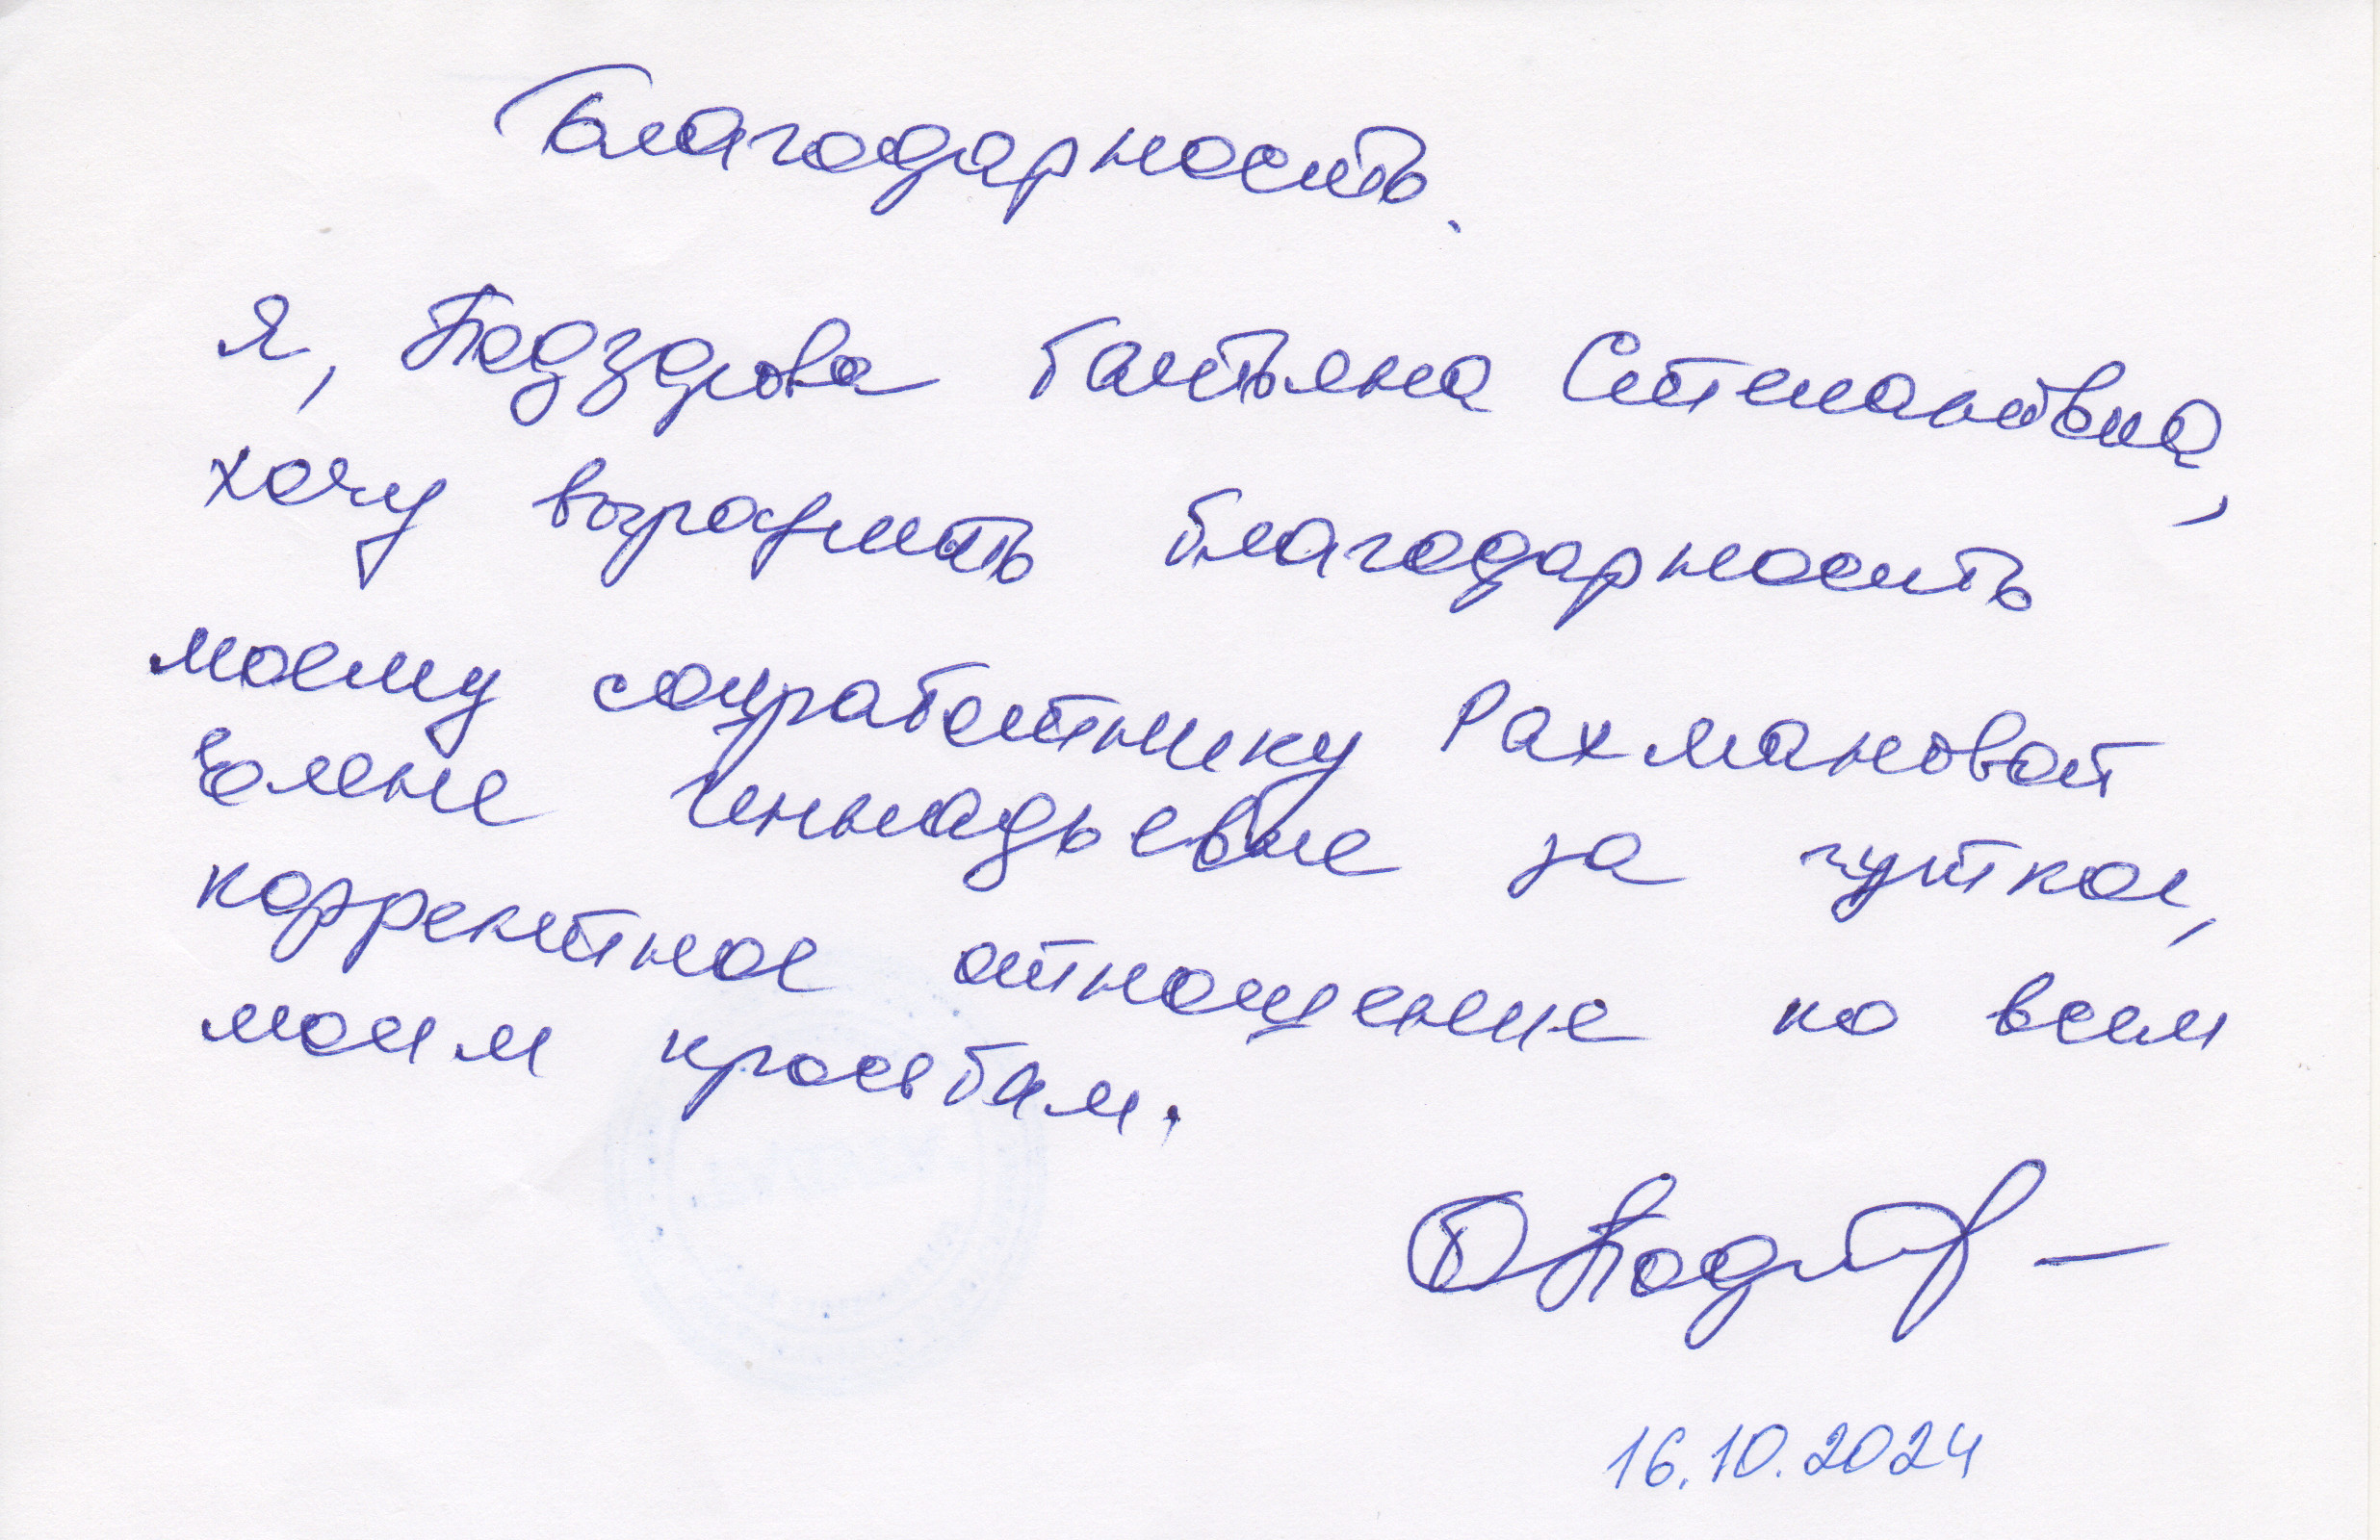 Благодарность.
Я, Подздрова Татьяна Степановна,
хочу выразить благодарность
моему соцработнику Рахмановой
Елене Геннадьевне за чуткое,
корректное отношение ко всем
моим просьбам.
16.10.2024